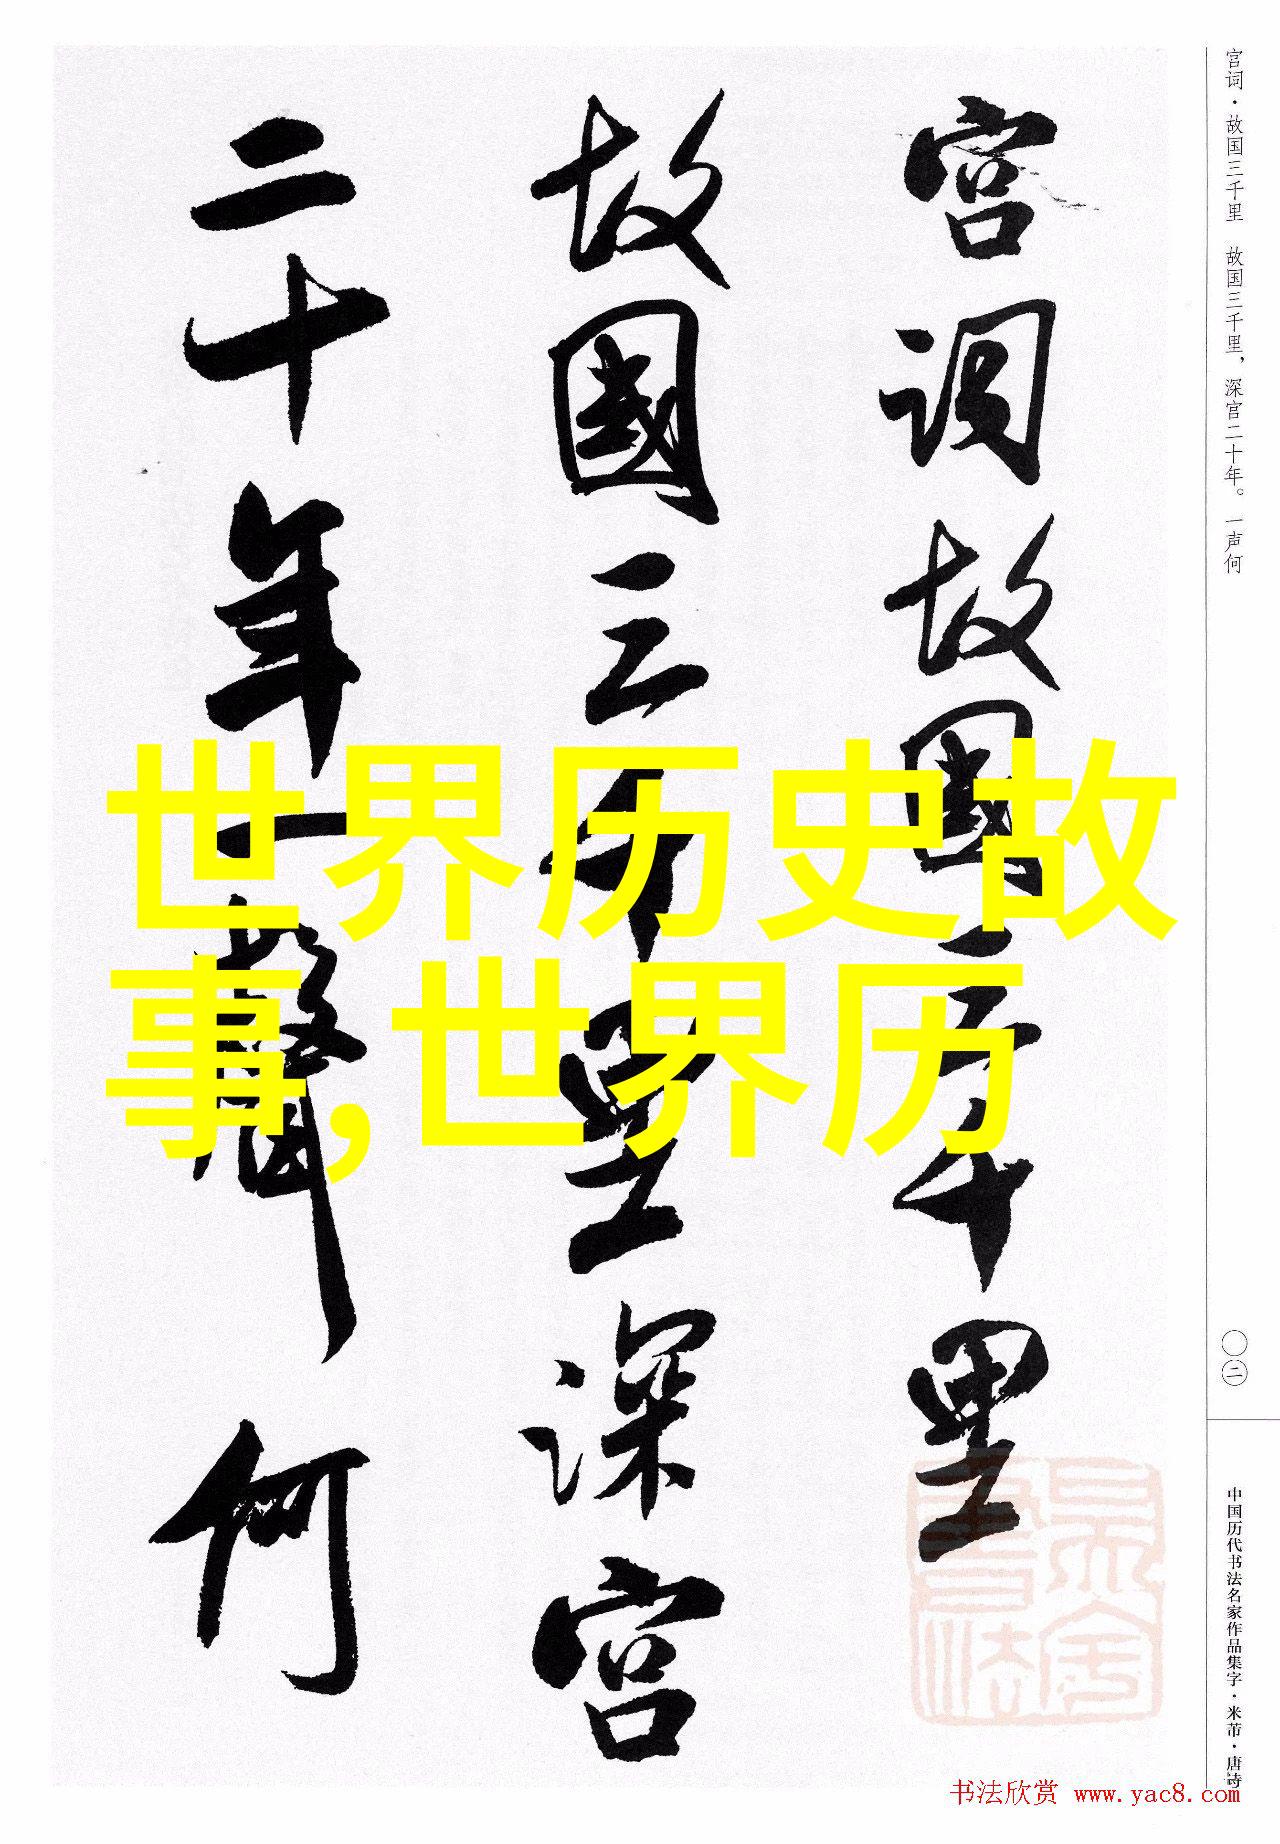 宫词·故国三千里　故国三千里，深宫二十年。一声何
宫词故國三千里
故國三千里深宫
二十年一聲何
世界历史故
事,世界历
〇二
中国历代书法名家作品集字·米芾·唐诗
书法欣赏 www.yac8.com